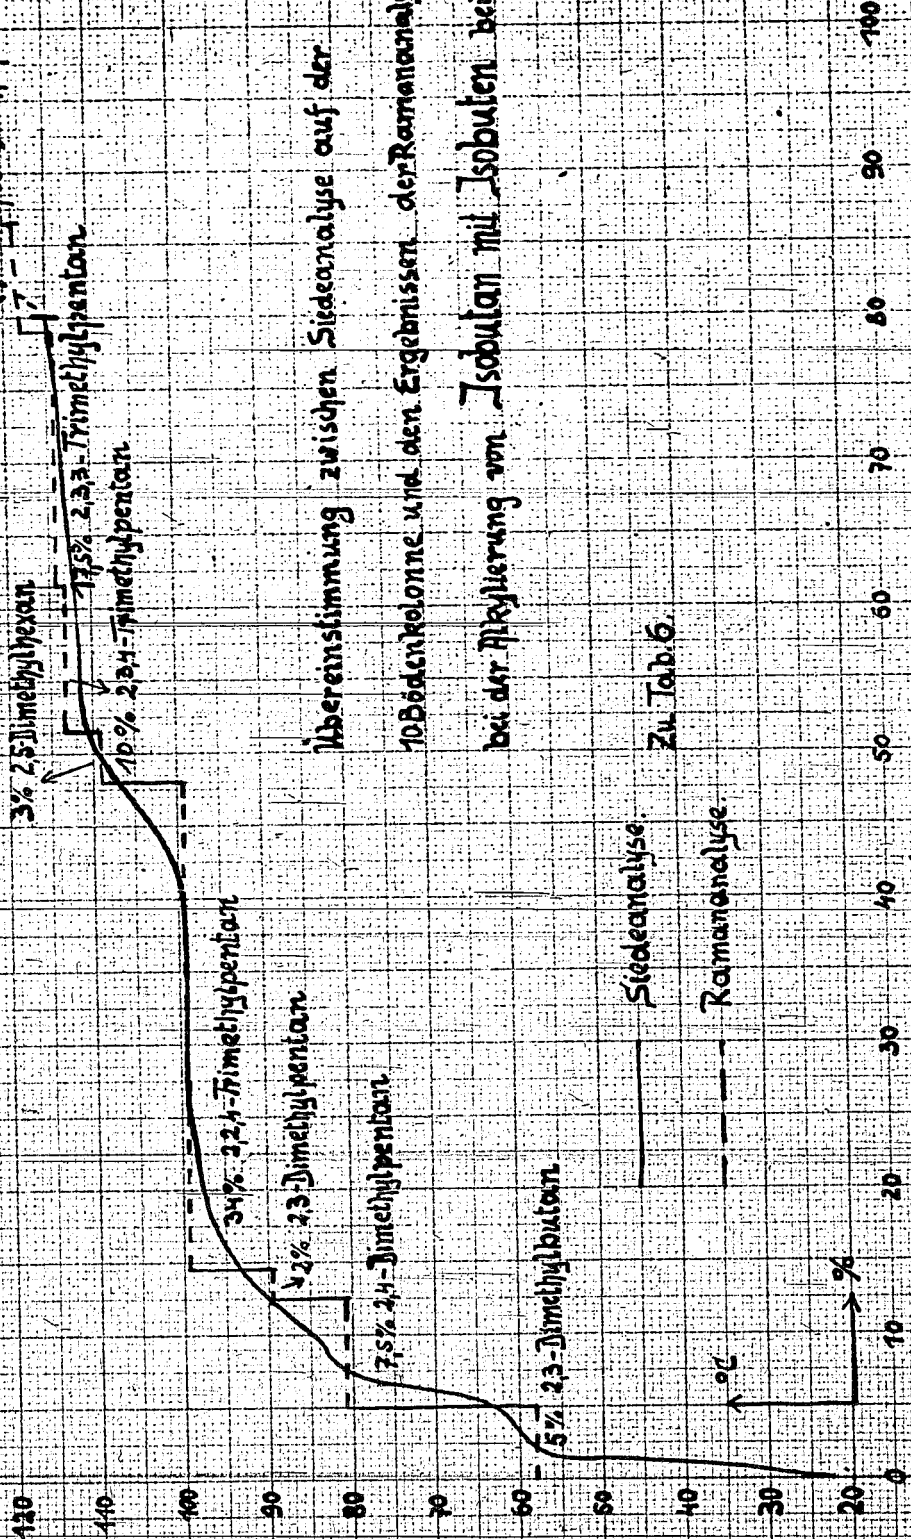 3% 2,5-Dimethylhexan
17,5% 2,3,3-Trimethylpentan
10% 2,3,4-Trimethylpentan
34% 2,2,4-Trimethylpentan
2% 2,3-Dimethylpentan
7,5% 2,4-Dimethylpentan
5% 2,3-Dimethylbutan
Übereinstimmung zwischen Siedeanalyse auf der
10 Bödenkolonne und den Ergebnissen der Ramananaly
bei der Alkylierung von Isobutan mit Isobuten be
Zu Tab. 6.
Siedeanalyse.
Ramananalyse.
°C
%
120
110
100
90
80
70
60
50
40
30
20
0
10
20
30
40
50
60
70
80
90
100
?